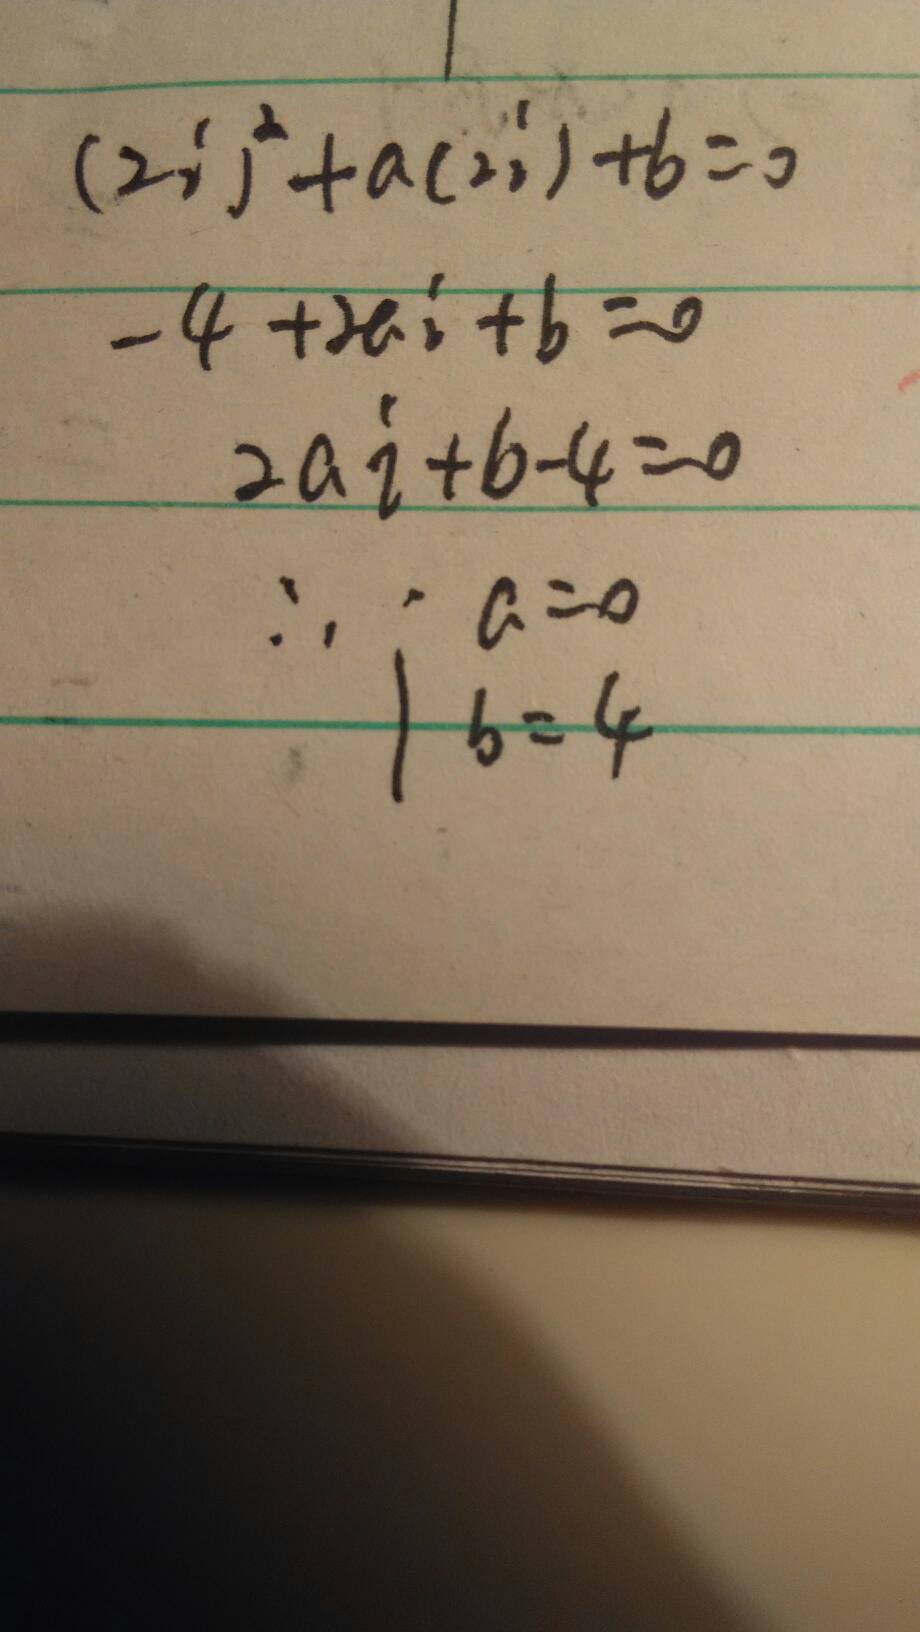 (2i)²+a(2i)+b=0
-4+2ai+b=0
2ai+b-4=0
∴ a=0
b=4